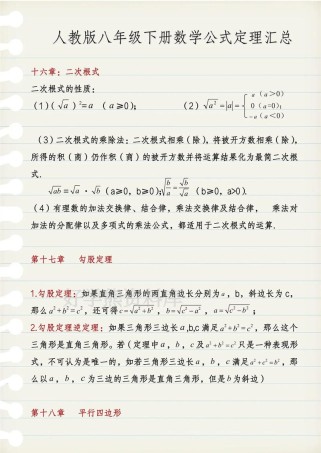 人教版八年级下册数学公式定理汇总
十六章：二次根式
二次根式的性质：
(1)(√a)²=a （a≥0）； (2) √a²=|a|= { a（a＞0） 0（a=0）； −a（a＜0）
（3）二次根式的乘除法：二次根式相乘（除），将被开方数相乘（除），
所得的积（商）仍作积（商）的被开方数并将运算结果化为最简二次根
式.
√ab=√a·√b（a≥0，b≥0）；√(b/a)=√b/√a（b≥0，a>0）.
（4）有理数的加法交换律、结合律，乘法交换律及结合律， 乘法对
加法的分配律以及多项式的乘法公式，都适用于二次根式的运算.
第十七章 勾股定理
1.勾股定理：如果直角三角形的两直角边长分别为a，b，斜边长为c，
那么a²+b²=c²，还可得c=√a²+b²，b=√c²−a²，a=√c²−b²；
2.勾股定理逆定理：如果三角形三边长a,b,c满足a²+b²=c²，那么这个
三角形是直角三角形。若（定理中a，b，c及a²+b²=c²只是一种表现形
式，不可认为是唯一的，如若三角形三边长a，b，c满足a²+c²=b²，那
么以a，b，c为三边的三角形是直角三角形，但是b为斜边）
第十八章 平行四边形